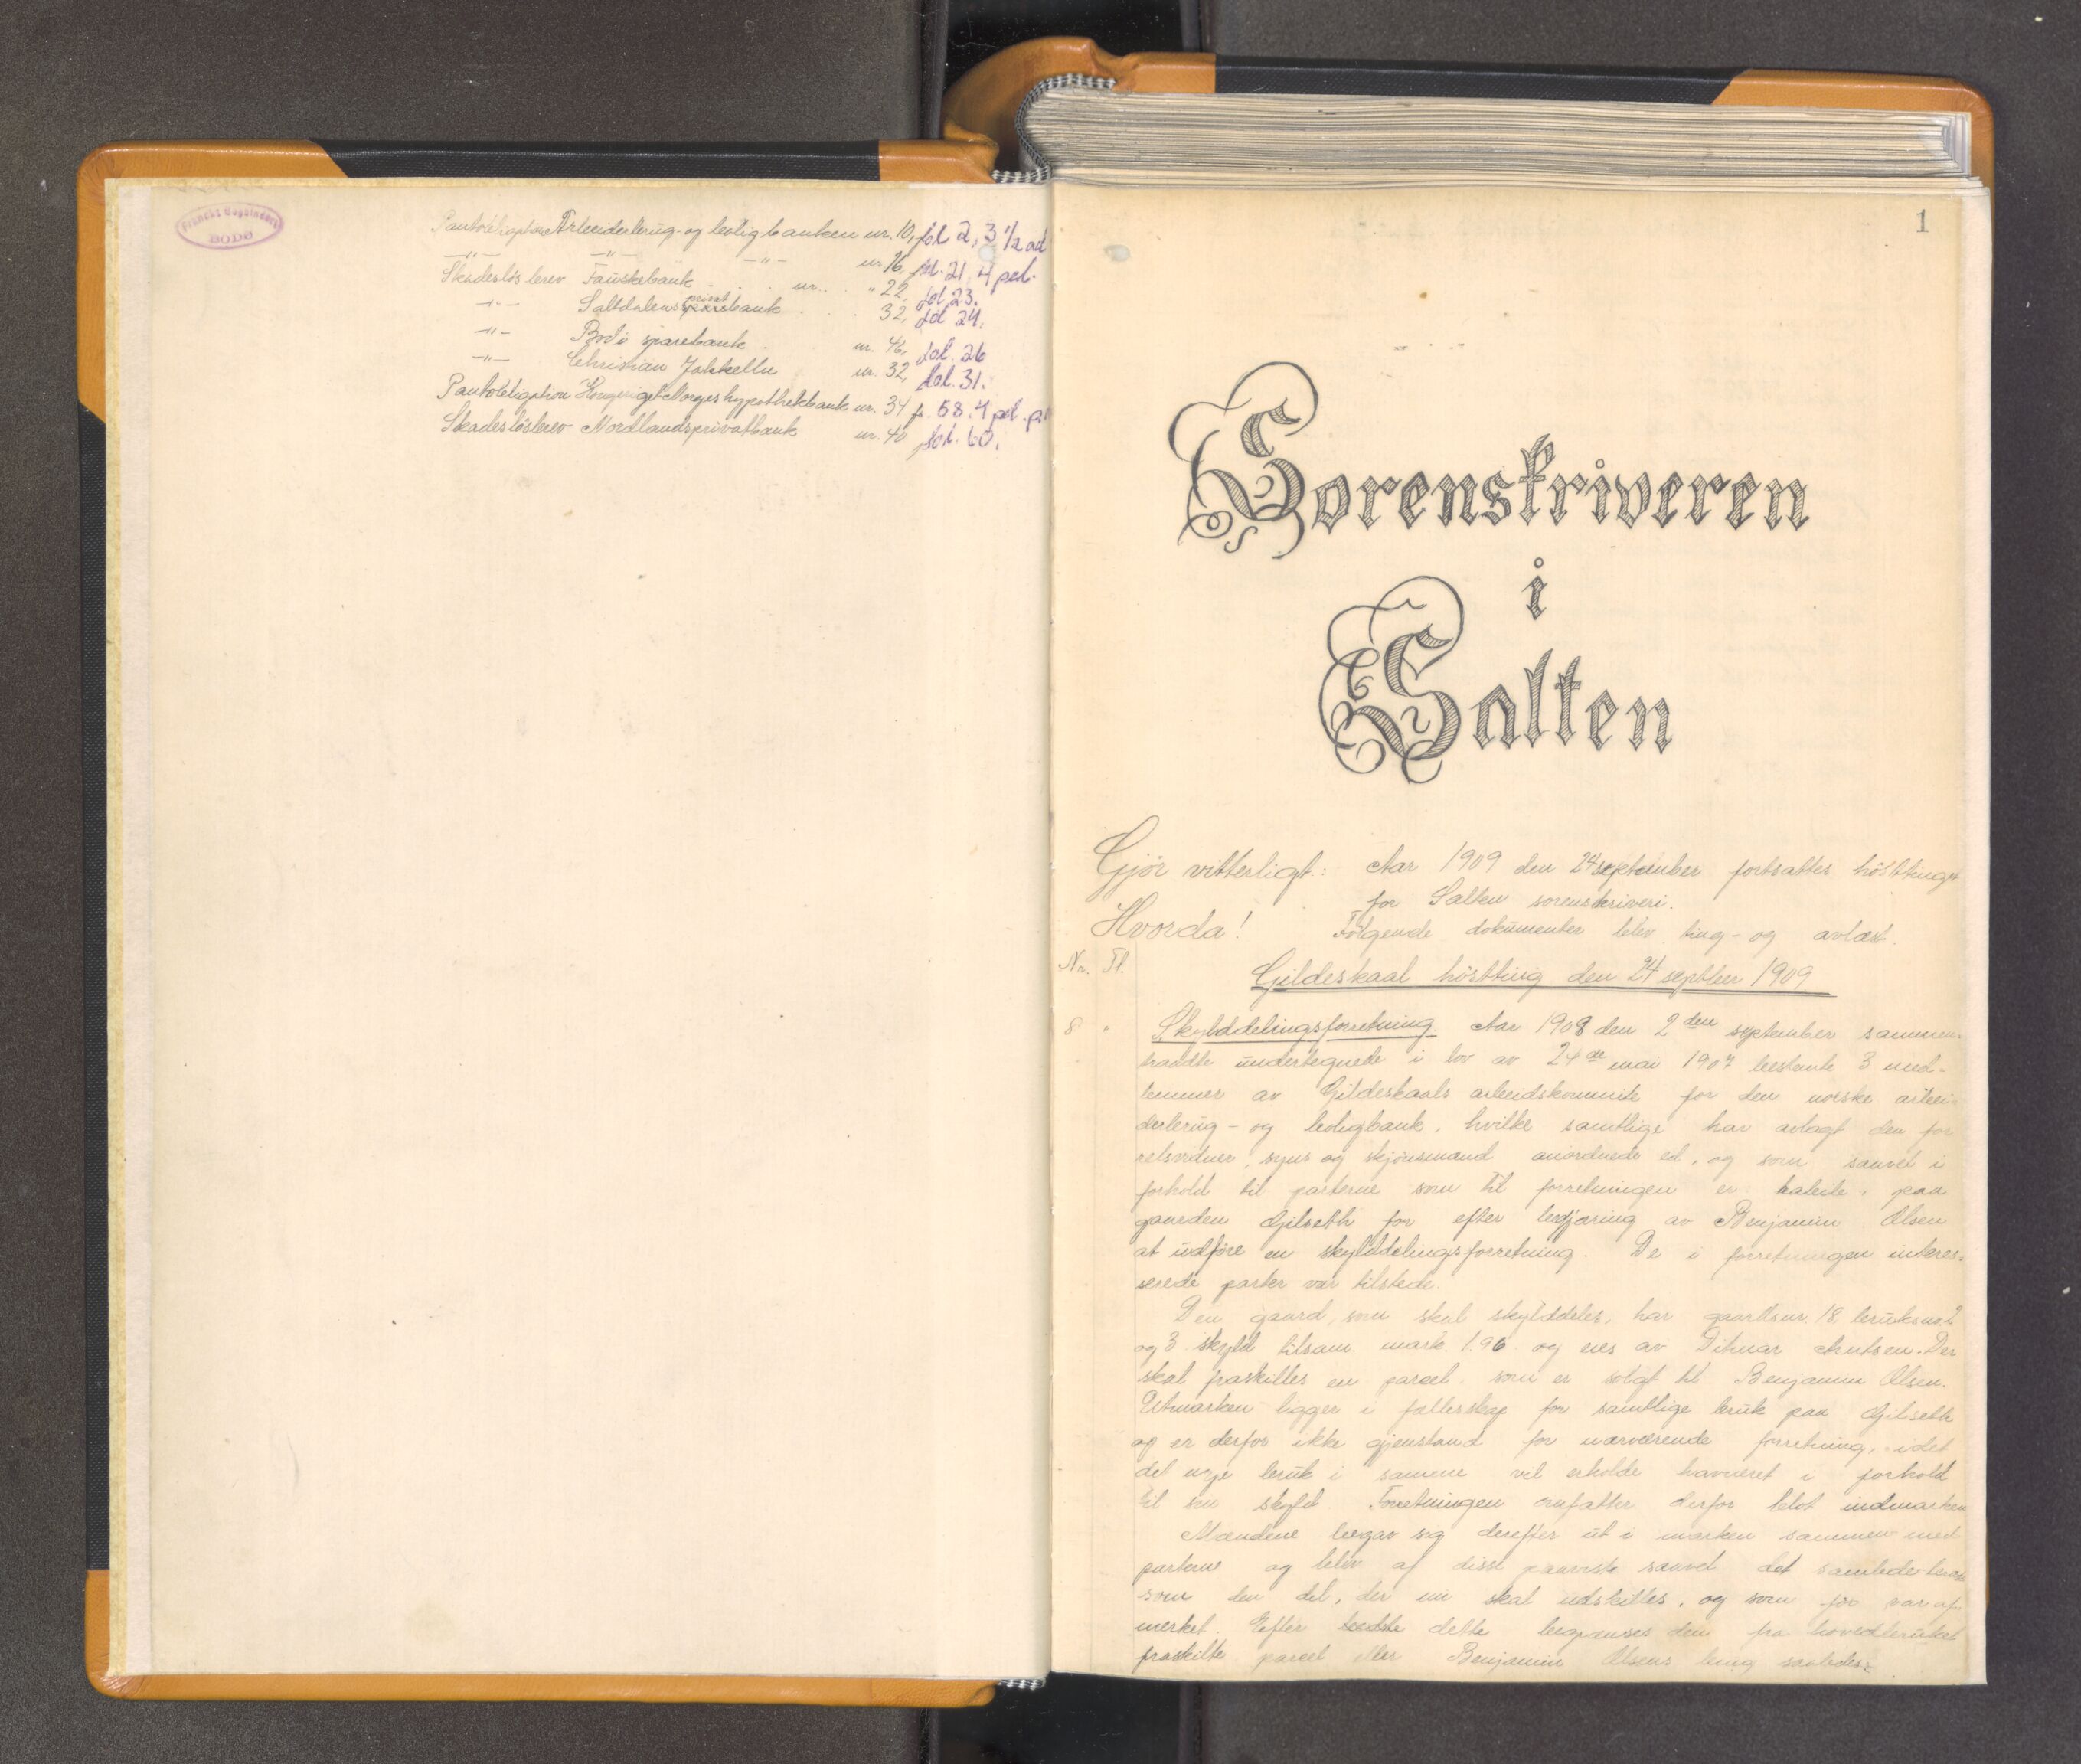 BODØ
Pantobligation Arbeiderbrug- og boligbanken nr. 10, fol 2, 3 1/2 ad
—"— —"— —"— nr 16, fol. 21, 4 pct.
Skadesløsbrev Fauskebank . . nr. . " 22, fol 23.
—"— Saltdalens privat bank . . . 32, fol 24.
—"— Bodö sparebank . nr. 46, fol. 26
—"— Christian Jakhelln nr. 32, fol. 31.
Pantobligation Kongeriget Norges hypothekbank nr. 34 f. 58. 4 pct. p.
Skadesløsbrev Nordlands privatbank nr. 40 fol. 60.
1
Sorenskriveren
i
Salten
Gjör vitterligt: Aar 1909 den 24 september fortsattes hösttinget
for Salten sorenskriveri.
Hvorda! Fölgende dokumenter blev ting- og avlæst.
Nr. Fl. Gildeskaal höstting den 24 septber 1909
8 " Skylddelingsforretning. Aar 1908 den 2den september sammen-
traadte undertegnede i lov av 24de mai 1907 bestemte 3 med-
lemmer av Gildeskaals arbeidskomite for den norske arbei-
derbrug- og boligbank, hvilke samtlige har avlagt den for
retsvidner, syns og skjönsmænd anordnede ed, og som saavel i
forhold til parterne som til forretningen er habile, paa
gaarden Gilseth for efter begjæring av Benjamin Olsen
at udföre en skylddelingsforretning. De i forretningen interes-
serede parter var tilstede.
Den gaard, som skal skylddeles, har gaardsnr. 18 bruksnr. 2
og 3 skyld tilsam. mark. 1.96 og eies av Ditmar Antsen. Der
skal fraskilles en parcel som er solgt til Benjamin Olsen.
Utmarken ligger i fællesskap for samtlige bruk paa Gilseth
og er derfor ikke gjenstand for nærværende forretning, idet
det nye bruk i samme vil erholde havneret i forhold
til sin skyld. Forretningen omfatter derfor blot indmarken
Mændene begav sig derefter ut i marken sammen med
parterne og blev af disse paavist saavel det samlede bruk
som den del, der nu skal udskilles, og som för var af-
merket. Efter dette begrænses den fra hovedbruket
fraskilte parcel eller Benjamin Olsens brug saaledes: